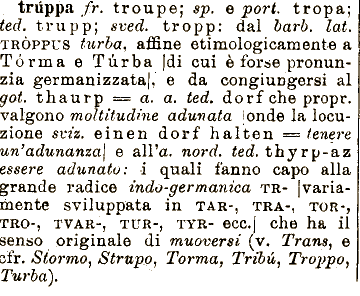 trúppa fr. troupe; sp. e port. tropa;
ted. trupp; sved. tropp: dal barb. lat.
TRÒPPUS turba, affine etimologicamente a
Tórma e Túrba |di cui è forse pronun-
zia germanizzata|, e da congiungersi al
got. thaurp = a. a. ted. dorf che propr.
valgono moltitudine adunata |onde la locu-
zione sviz. einen dorf halten = tenere
un'adunanza| e all'a. nord. ted. thyrp-az
essere adunato: i quali fanno capo alla
grande radice indo-germanica TR- |varia-
mente sviluppata in TAR-, TRA-, TOR-,
TRO-, TVAR-, TUR-, TYR- ecc.| che ha il
senso originale di muoversi (v. Trans, e
cfr. Stormo, Strupo, Torma, Tribú, Troppo,
Turba).